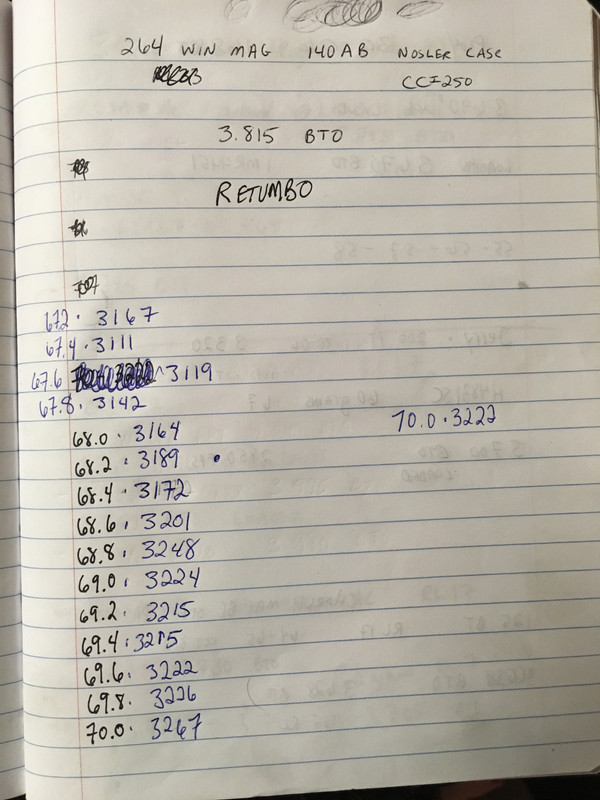 264 WIN MAG 140AB NOSLER CASE
CCI250
3.815 BTO
RETUMBO
67.2 · 3167
67.4 · 3111
67.6 · 3119
67.8 · 3142
68.0 · 3164
70.0 · 3222
68.2 · 3189
68.4 · 3172
68.6 · 3201
68.8 · 3248
69.0 · 3224
69.2 · 3215
69.4 ·
69.6 · 3222
69.8 · 3226
70.0 · 3267